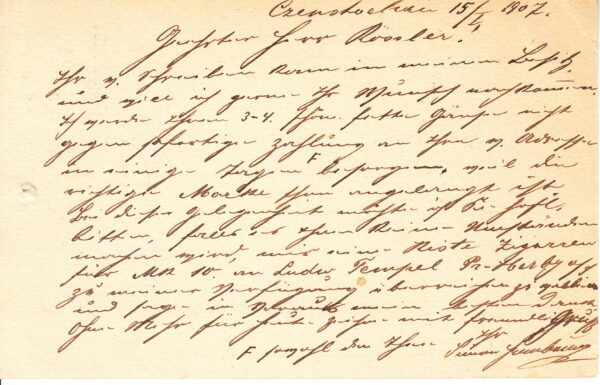 Czenstochau 15/I 1907.
Geehrter Herr Rössler!
Ihr w. Schreiben kam in meinen Besitz
und will ich gerne Ihr Wunsch nachkommen.
Ich werde Ihnen 3-4 schöne fette Gänse
gegen sofortige Zahlung an Ihre w. Adresse
in einige Tagen F besorgen, weil die
richtige Marke schon angelangt ist.
Bei dieser Gelegenheit möchte ich Sie höfl.
bitten, falls es Ihnen keine Umständen
machen wird, mir eine Kiste Zigarren
für MK 10. an Ludw Tempel Pr-Herby
zu meiner Verfügung überreichen zu wollen
und sage in Voraus mein besten Dank
Ohne Mehr für heute zeichne mit freundl. Gruß
Ihr
F sowohl den Thee